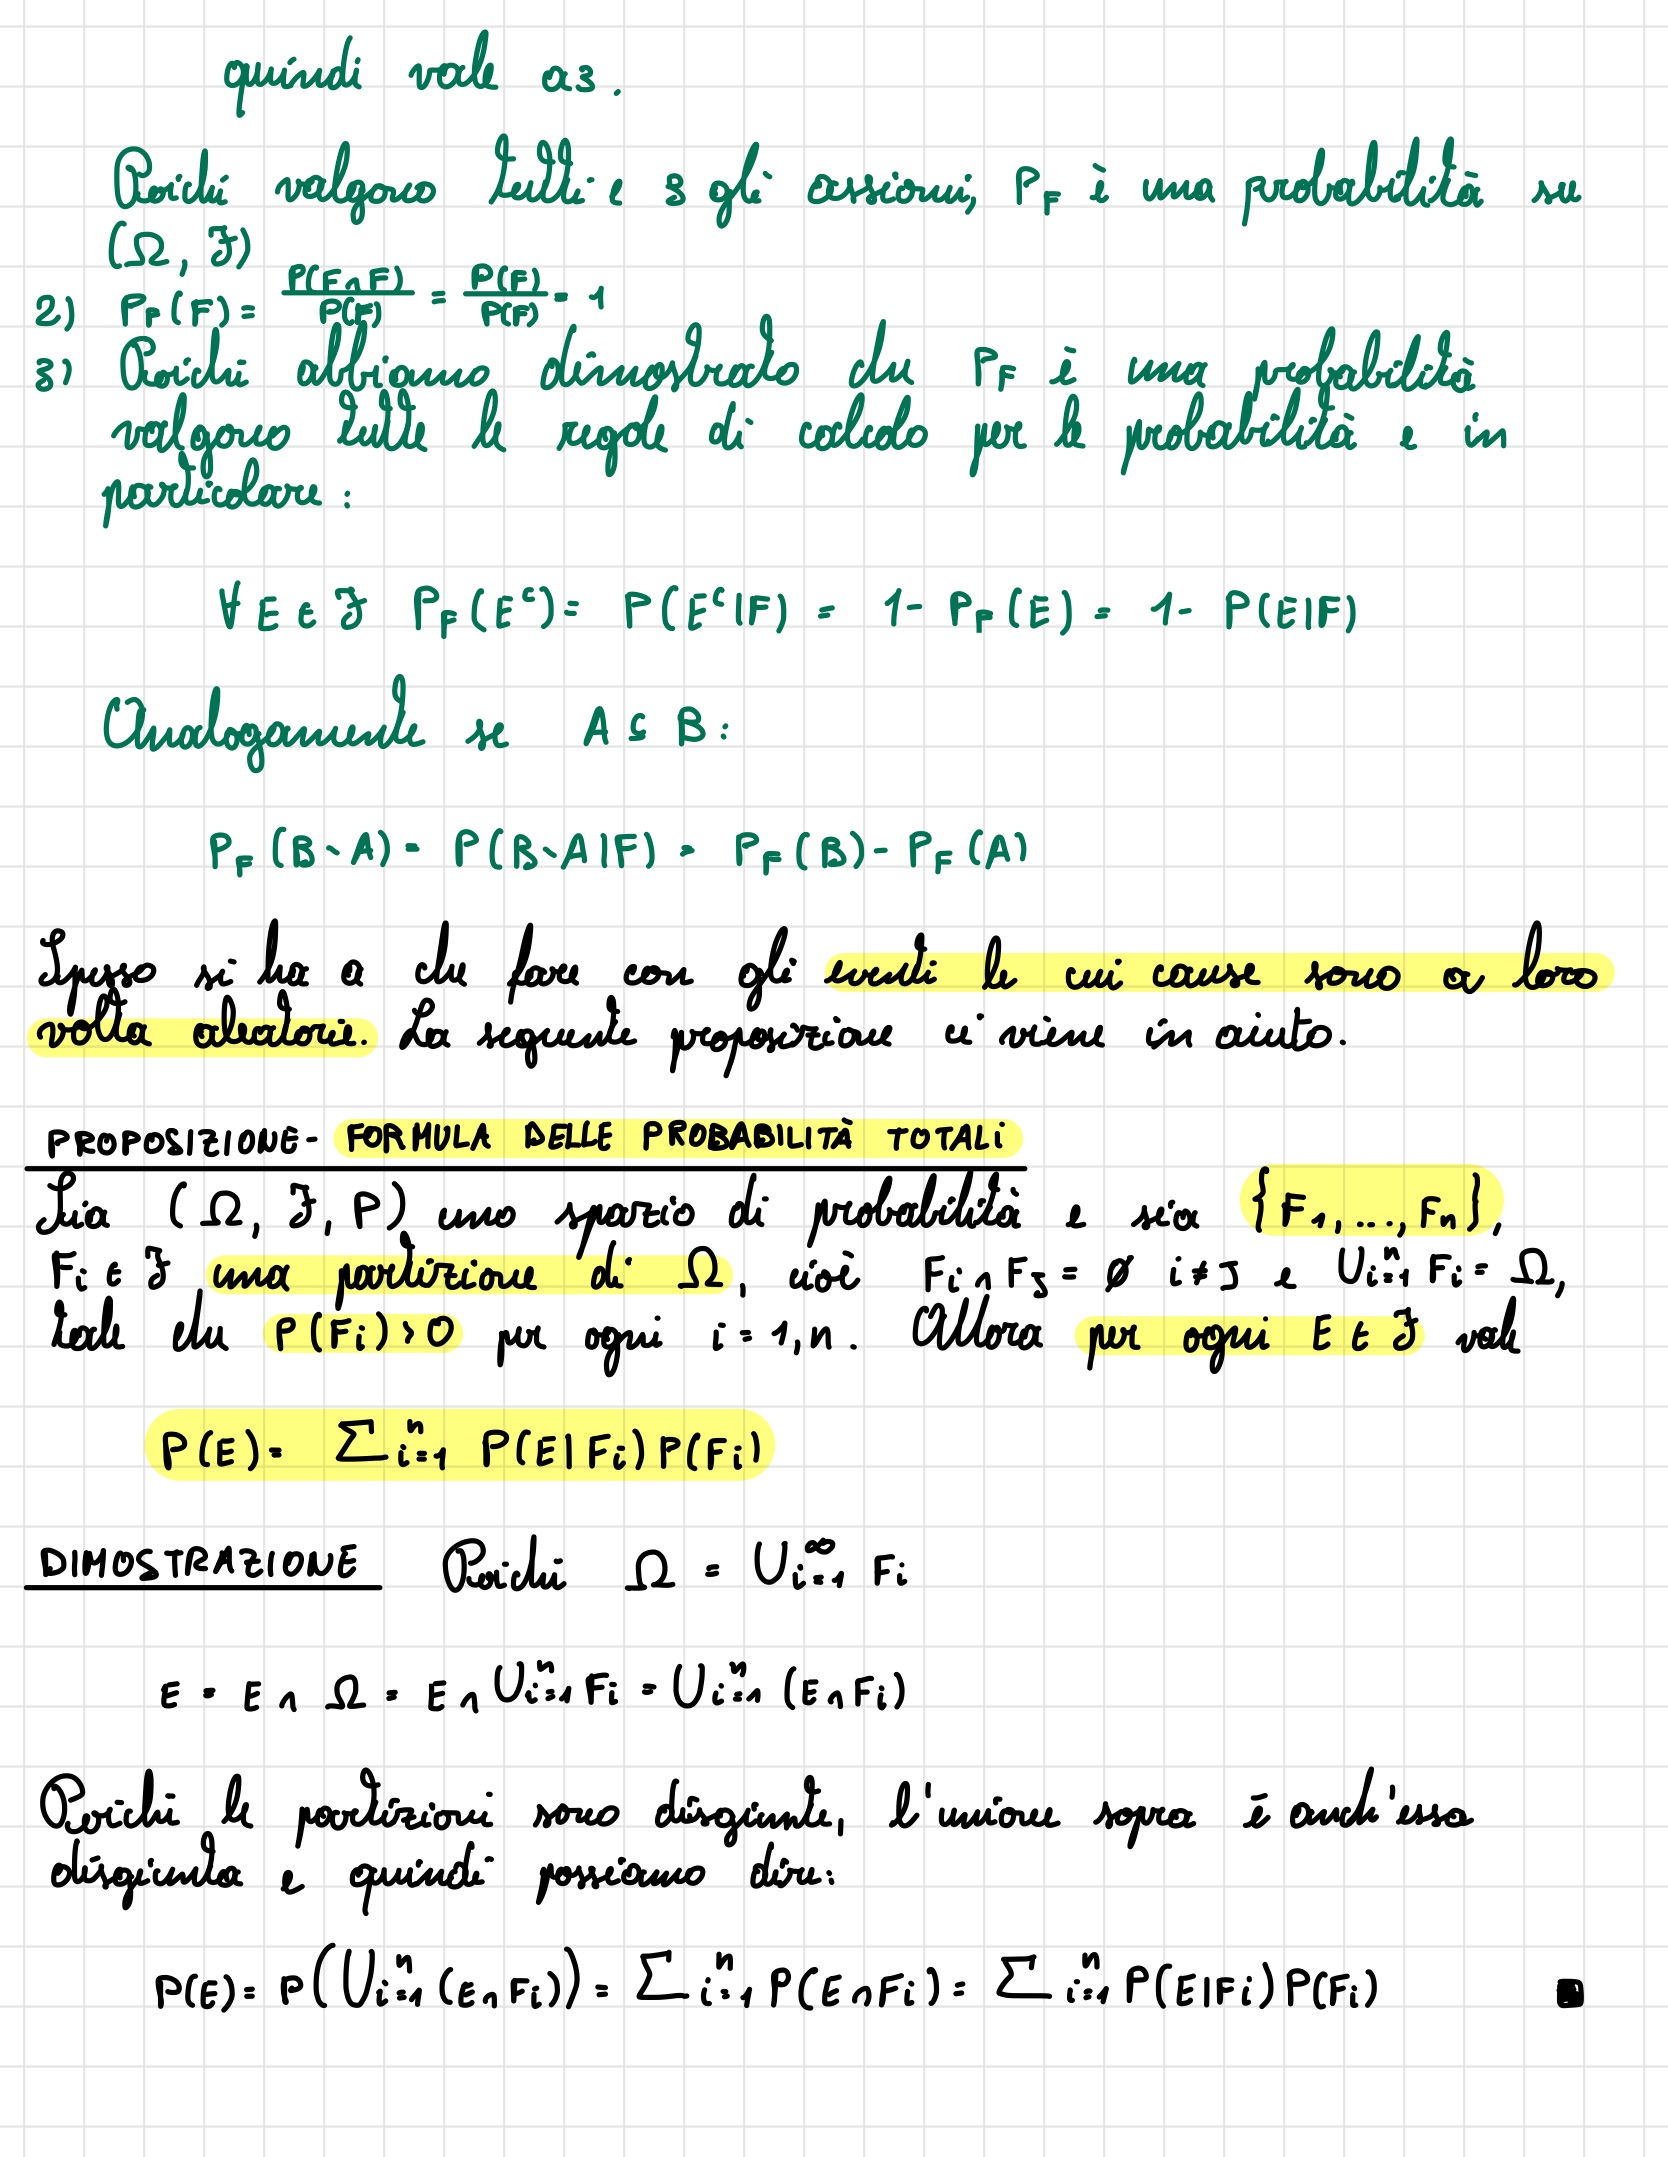 quindi vale a3.
Poiché valgono tutti e 3 gli assiomi, P_F è una probabilità su
(Ω, ℱ)
2) P_F(F) = P(F∩F)/P(F) = P(F)/P(F) = 1
3) Poiché abbiamo dimostrato che P_F è una probabilità
valgono tutte le regole di calcolo per le probabilità e in
particolare:
∀ E ∈ ℱ P_F(Eᶜ) = P(Eᶜ|F) = 1 - P_F(E) = 1 - P(E|F)
Analogamente se A ⊆ B:
P_F(B∖A) = P(B∖A|F) = P_F(B) - P_F(A)
Spesso si ha a che fare con gli eventi le cui cause sono a loro
volta aleatorie. La seguente proposizione ci viene in aiuto.
PROPOSIZIONE - FORMULA DELLE PROBABILITÀ TOTALI
Sia (Ω, ℱ, P) uno spazio di probabilità e sia {F₁, ..., Fₙ},
Fᵢ ∈ ℱ una partizione di Ω, cioè Fᵢ ∩ F_J = ∅ i ≠ J e ∪ᵢ₌₁ⁿ Fᵢ = Ω,
tale che P(Fᵢ) > 0 per ogni i = 1, n. Allora per ogni E ∈ ℱ vale
P(E) = ∑ᵢ₌₁ⁿ P(E|Fᵢ) P(Fᵢ)
DIMOSTRAZIONE Poiché Ω = ∪ᵢ₌₁^∞ Fᵢ
E = E ∩ Ω = E ∩ ∪ᵢ₌₁ⁿ Fᵢ = ∪ᵢ₌₁ⁿ (E ∩ Fᵢ)
Poiché le partizioni sono disgiunte, l'unione sopra è anch'essa
disgiunta e quindi possiamo dire:
P(E) = P(∪ᵢ₌₁ⁿ (E ∩ Fᵢ)) = ∑ᵢ₌₁ⁿ P(E ∩ Fᵢ) = ∑ᵢ₌₁ⁿ P(E|Fᵢ) P(Fᵢ) ■